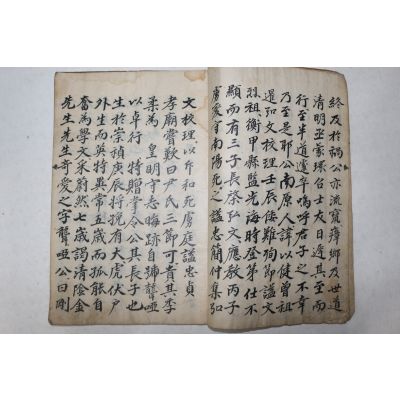 終及於禍公亦流竄瘴鄉及世道
清明丕蒙環召士友日遲其至而
行至半道遽卒嗚呼君子之不幸
乃至是耶公南原人諱以健曾祖
暹弘文校理壬辰倭難殉節謚文
烈祖衡甲縣監光海時登第仕不
顯而有三子長㷜弘文應教丙子
虜變守南陽死之謚忠簡付集弘
文校理以斥和死虜庭謚忠貞
孝廟嘗歎曰尹氏三節可貴其季
柔為 皇明守志晦跡自號聾啞
以卓行 特贈掌令公其長子也
生於崇禎庚辰將挽有大虎伏戶
外生而英特異常五歲而孤能自
奮為學文采蔚然七歲謁清陰金
先生先生奇愛之字聾啞公曰剛